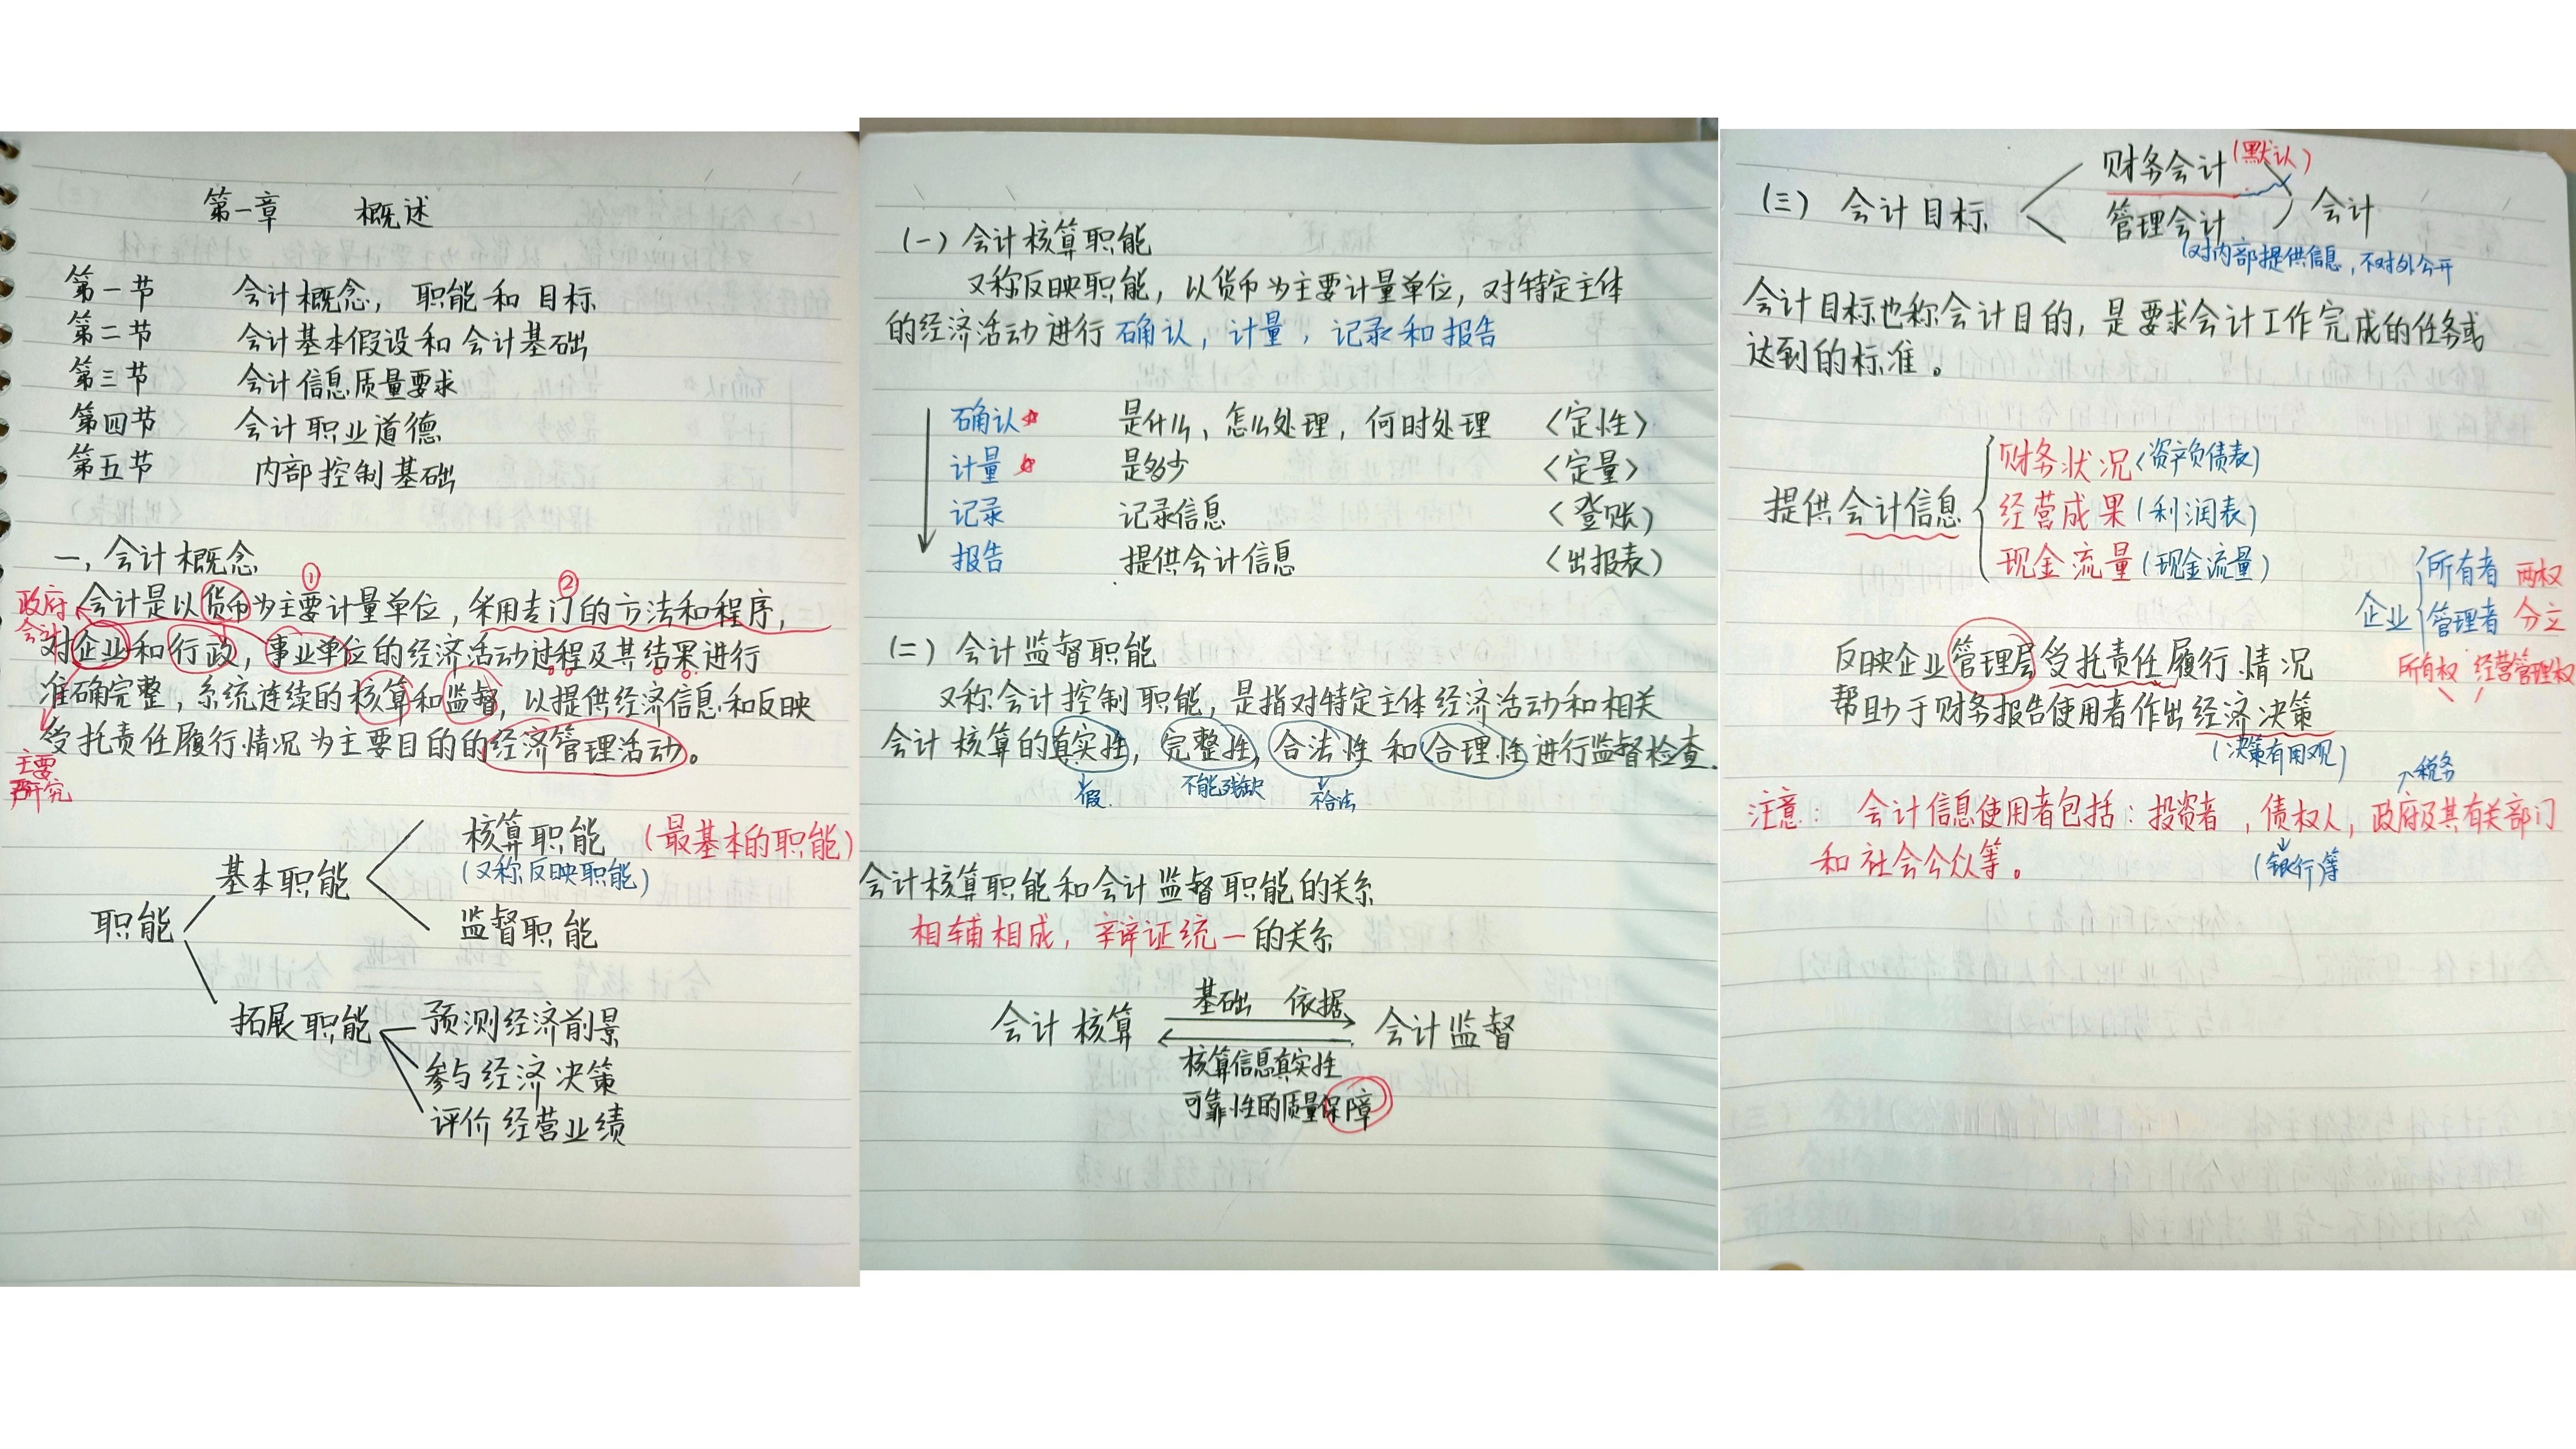 第一章 概述
第一节 会计概念，职能和目标
第二节 会计基本假设和会计基础
第三节 会计信息质量要求
第四节 会计职业道德
第五节 内部控制基础
一，会计概念
① ②
会计是以货币为主要计量单位，采用专门的方法和程序，
政府会计
对企业和行政，事业单位的经济活动过程及其结果进行
准确完整，系统连续的核算和监督，以提供经济信息和反映
受托责任履行情况为主要目的的经济管理活动。
主要
研究
职能
基本职能
核算职能（最基本的职能）
（又称反映职能）
监督职能
拓展职能
预测经济前景
参与经济决策
评价经营业绩
（一）会计核算职能
又称反映职能，以货币为主要计量单位，对特定主体
的经济活动进行确认，计量，记录和报告
确认 是什么、怎么处理，何时处理 〈定性〉
计量 是多少 〈定量〉
记录 记录信息 〈登账）
报告 提供会计信息 〈出报表）
（二）会计监督职能
又称会计控制职能，是指对特定主体经济活动和相关
会计核算的真实性，完整性，合法性和合理性进行监督检查.
假 不能残缺 不合法
会计核算职能和会计监督职能的关系
相辅相成，辛辩证统一的关系
基础 依据
会计核算 会计监督
核算信息真实性
可靠性的质量保障
（三）会计目标
财务会计（默认）
管理会计
会计
（对内部提供信息，不对外公开
会计目标也称会计目的，是要求会计工作完成的任务或
达到的标准。
提供会计信息
财务状况〈资产负债表）
经营成果（利润表）
现金流量（现金流量）
企业
所有者 两权
管理者 分立
所有权 经营管理权
反映企业管理层受托责任履行情况
帮助于财务报告使用者作出经济决策
（决策有用观）
税务
注意： 会计信息使用者包括：投资者，债权人，政府及其有关部门
和社会公众等。
（银行）等